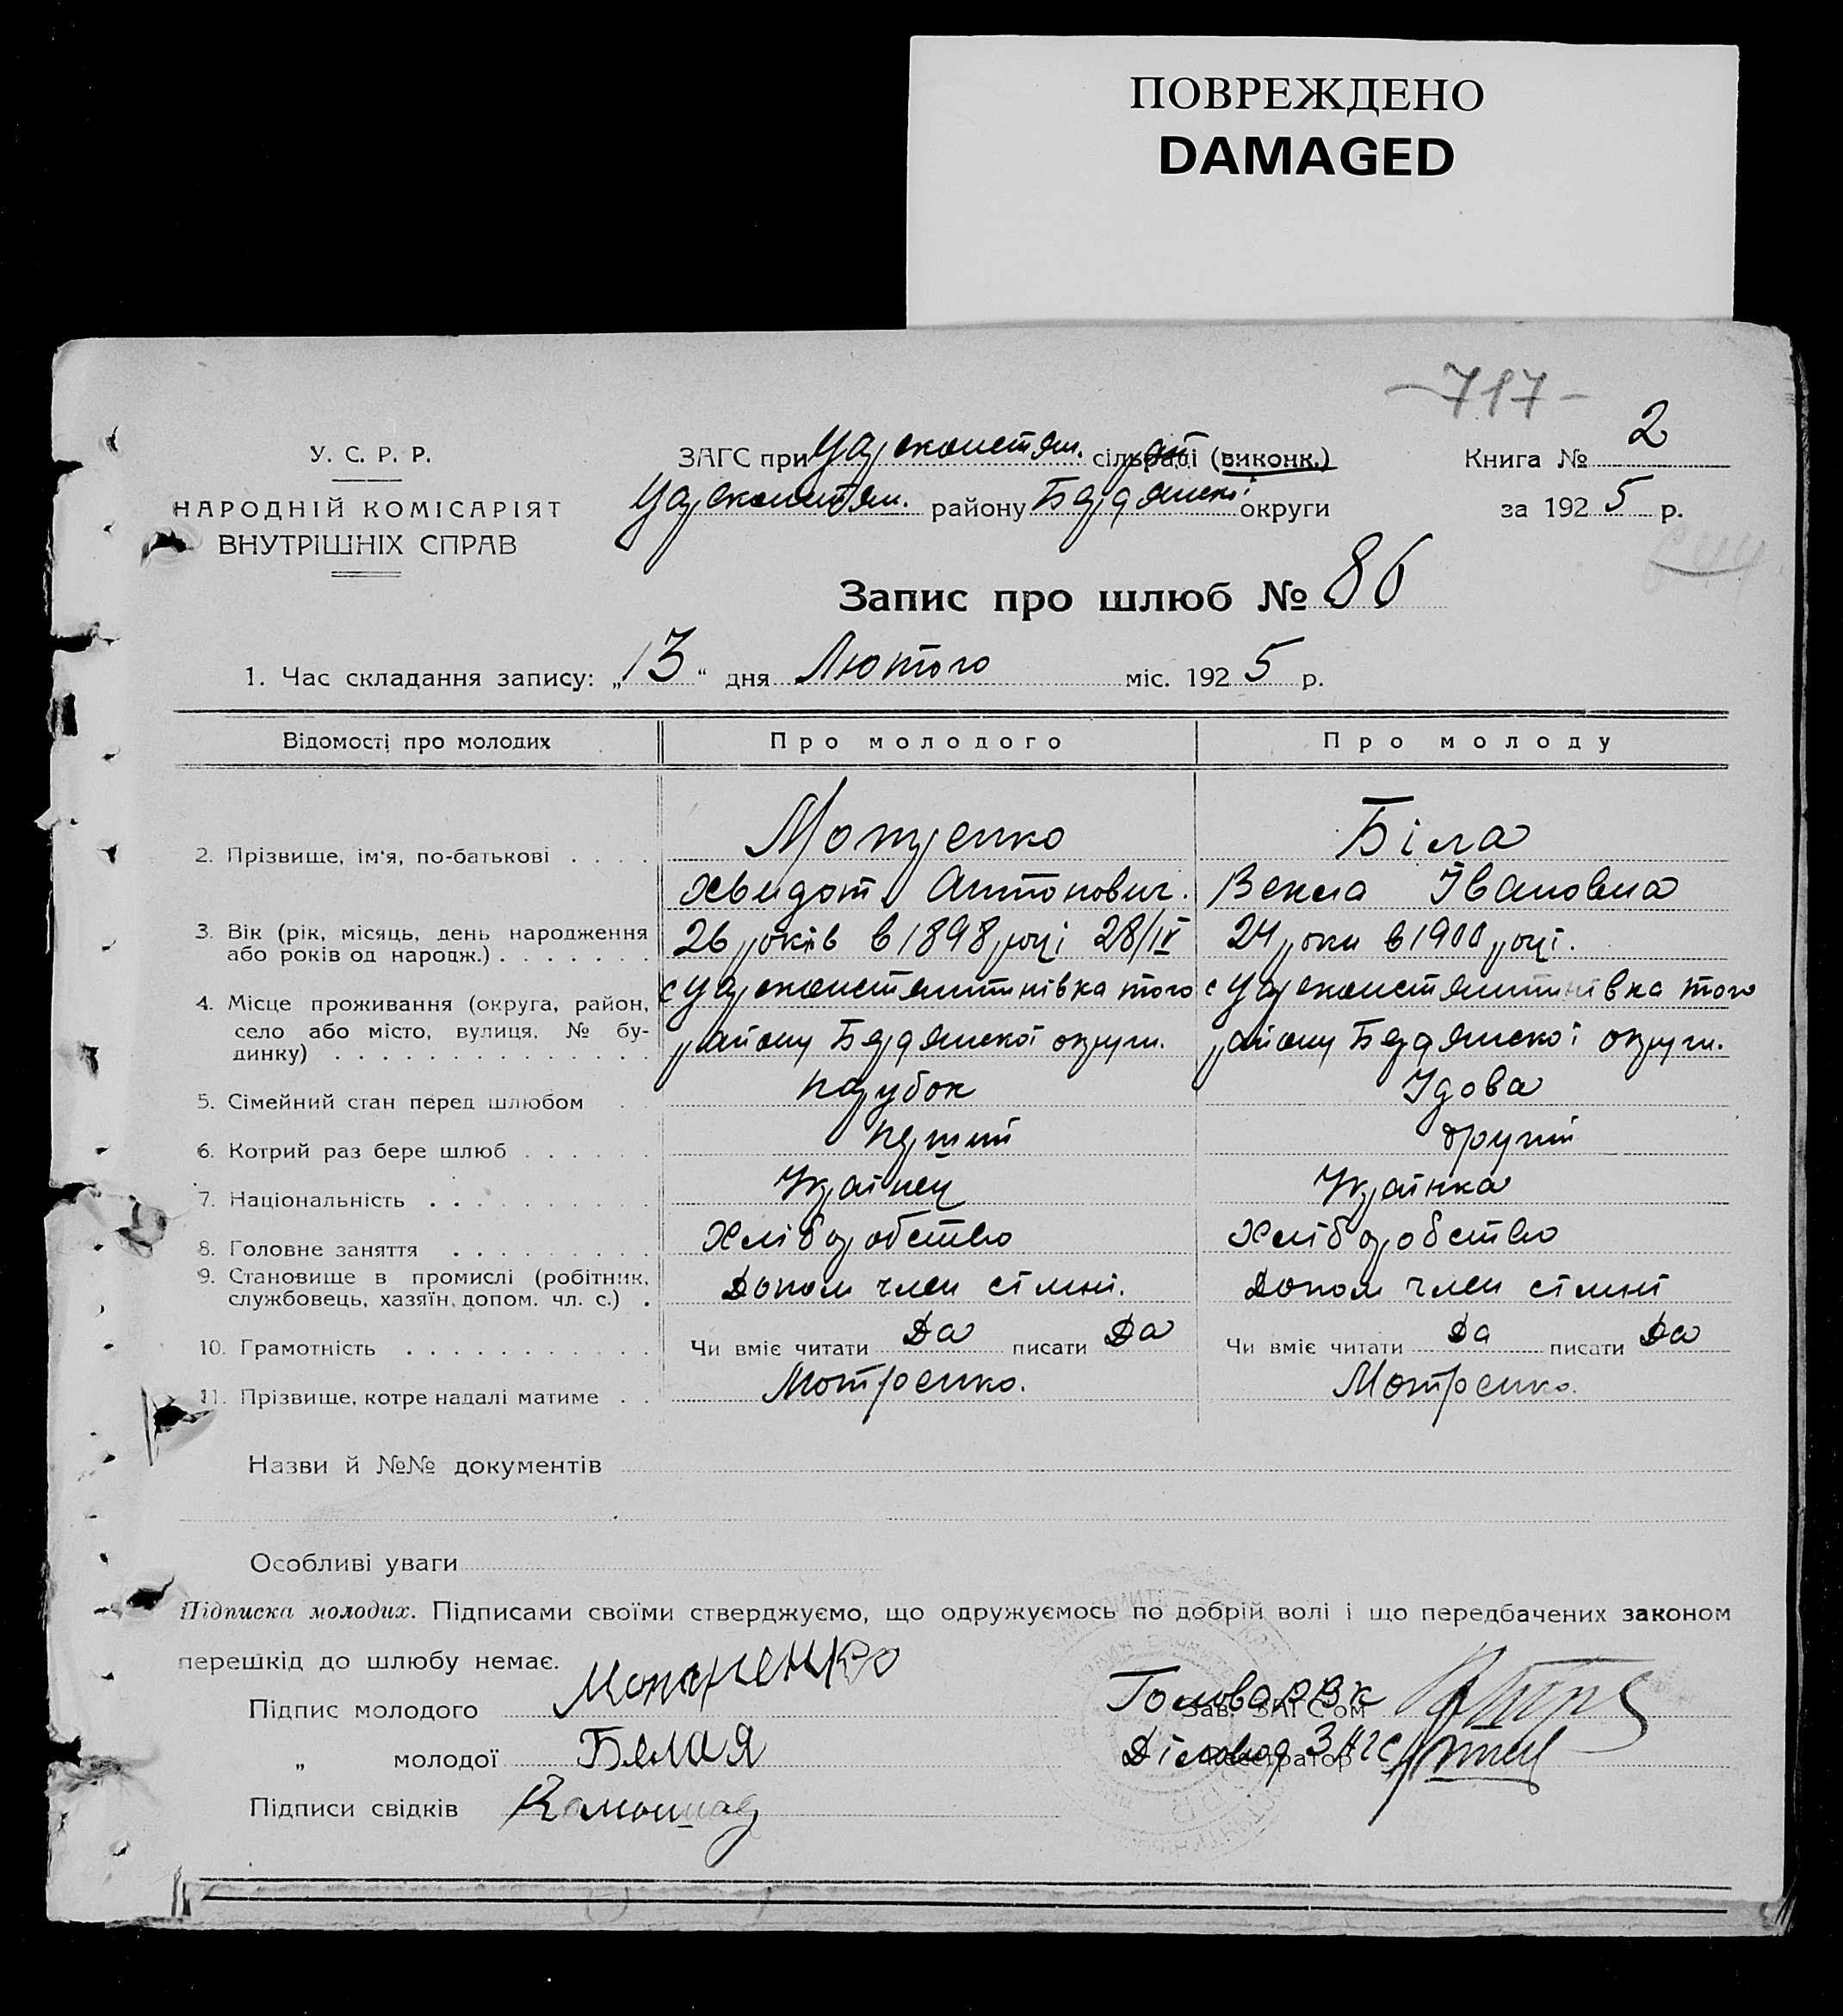 ПОВРЕЖДЕНО
DAMAGED
-717-
У. С. Р. Р.
НАРОДНІЙ КОМІСАРІЯТ
ВНУТРІШНІХ СПРАВ
ЗАГС при Цареконстян. сільраді (виконк.)
Цареконстян. району Бердянської округи
Книга № 2
за 1925 р.
Запис про шлюб № 86
1. Час складання запису: „13“ дня Лютого міс. 1925 р.
Відомості про молодих Про молодого Про молоду
2. Прізвище, ім'я, по-батькові . . . . Мотренко Біла
Хведот Антонович. Векла Івановна
3. Вік (рік, місяць, день народження або років од народж.) . . . . . . . 26 років в 1898 році 28/IV 24 роки в 1900 році.
4. Місце проживання (округа, район, село або місто, вулиця, № будинку) . . . . . . . . . . . . . . с Цареконстянтинівка того с Цареконстянтинівка того
району Бердянської округи. району Бердянської округи.
5. Сімейний стан перед шлюбом . . Парубок Удова
6. Котрий раз бере шлюб . . . . . . Перший другий
7. Національність . . . . . . . . . . Українец Українка
8. Головне заняття . . . . . . . . . Хліборобство Хліборобство
9. Становище в промислі (робітник, службовець, хазяїн, допом. чл. с.) . Допом член сімні. Допом член сімні
10. Грамотність . . . . . . . . . . . Чи вміє читати Да писати Да Чи вміє читати Да писати Да
11. Прізвище, котре надалі матиме . . Мотренко. Мотренко.
Назви й №№ документів
Особливі уваги
Підписка молодих. Підписами своїми стверджуємо, що одружуємось по добрій волі і що передбачених законом
перешкід до шлюбу немає.
Підпис молодого Мотренко
Голова РВК
Зав. ЗАГС'ом
„ молодої Белая
Діловод ЗАГС
Реєстратор
Підписи свідків